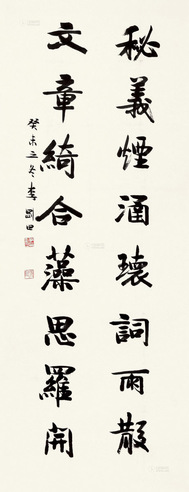 秘義煙涌瓌詞雨散
文章綺合藻思羅開
癸未立冬李剛田